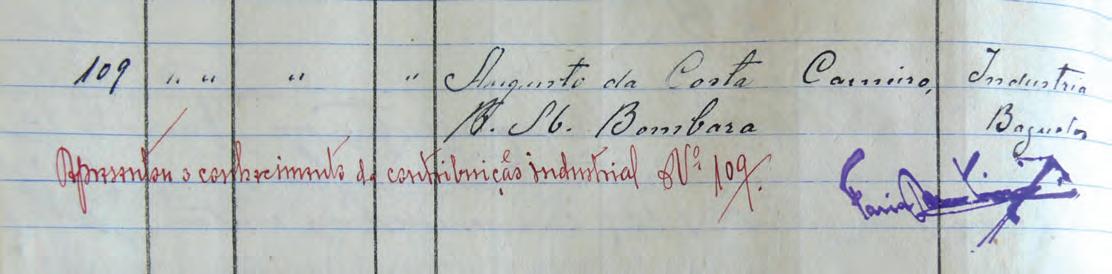 109 " " " " Augusto da Costa Carneiro, Industria
R. St. Bombara Baguetes
Apresentou o conhecimento da contribuição industrial Nº 109.
Faria